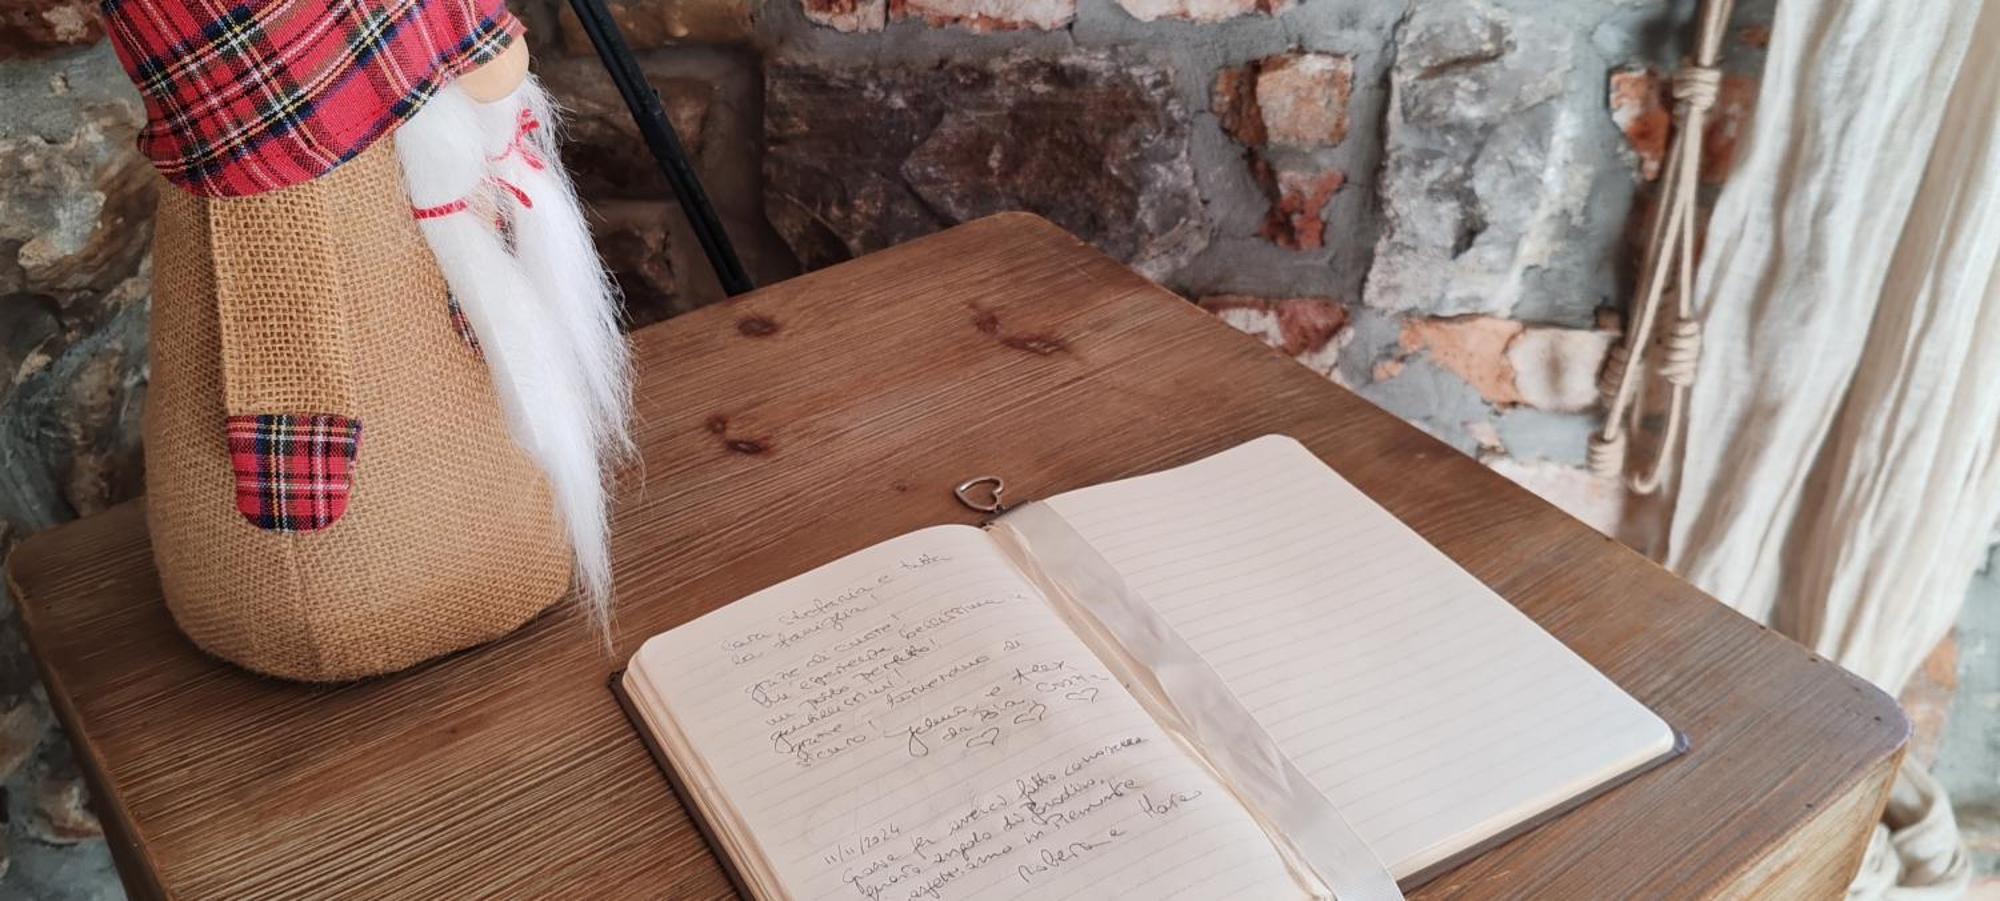 Cara Stefania e tutta
la famiglia!
grazie di cuore!
un'esperienza bellissima e
un posto perfetto!
gentilissimi!
grazie! Torneremo di
sicuro! e Alex
da Bia
11/11/2024
Grazie per averci fatto conoscere
questo angolo di Paradiso,
aspettiamo in Piemonte
Roberta e Marco